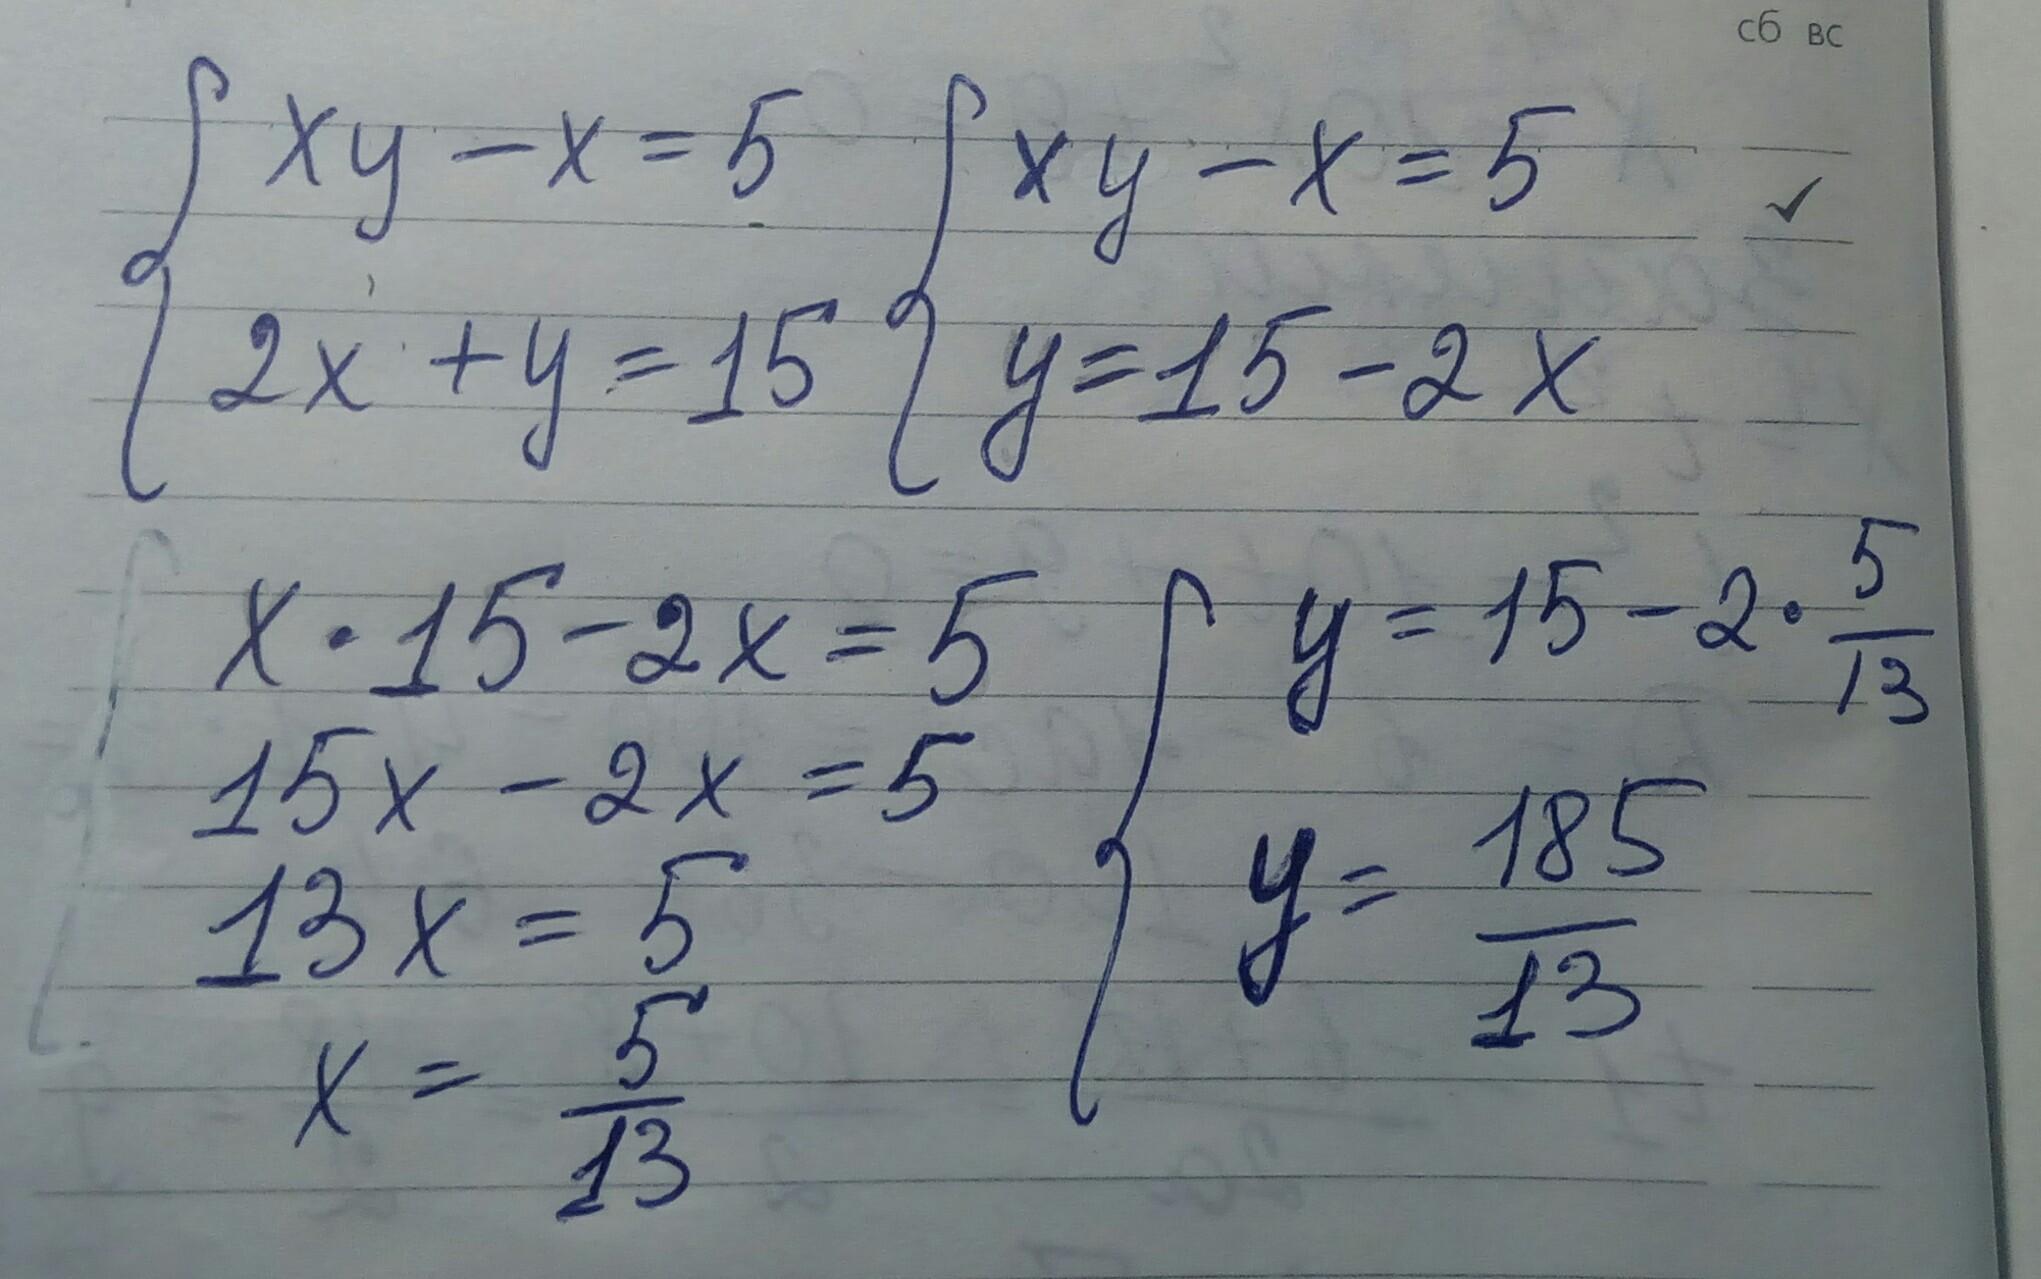 сб вс
xy - x = 5 xy - x = 5
2x + y = 15 y = 15 - 2x
x · 15 - 2x = 5
15x - 2x = 5
13x = 5
x = 5/13
y = 15 - 2 · 5/13
y = 185/13